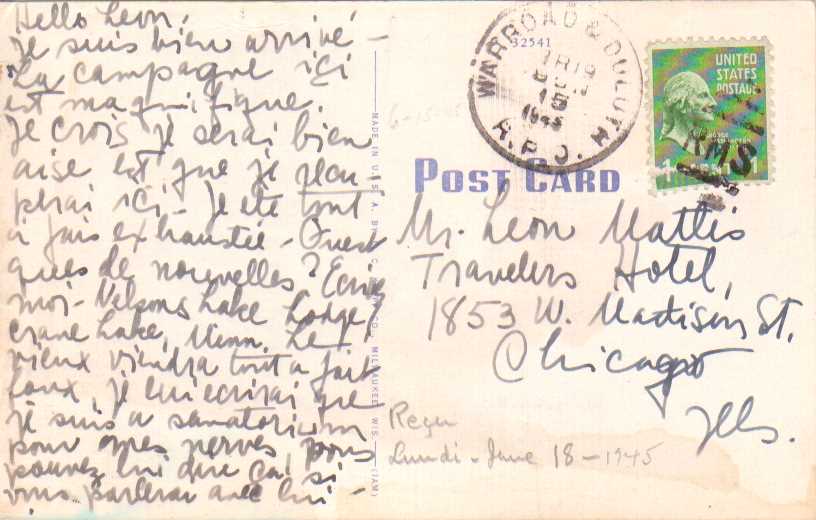 Hello Leon,
Je suis bien arrivé -
La campagne ici
est magnifique.
Je crois je serai bien
aise est que je recu-
perai ici - Je eté tout
a fais exhaustée - Quest
ques de nouvelles? Ecrivez
moi - Nelsons Lake Lodge,
Crane Lake, Minn. Le
vieux viendra tout a fait
foux, je lui ecrirai que
je suis a sanatorium
pour mes nerves, vous
pouvez lui dire ca, si
vous parlerai avec lui -
MADE IN U.S.A. BY C. CO., MILWAUKEE, WIS. (IAM)
6-15-45
32541
WARROAD & DULUTH
TR 19
15
1945
R.P.O.
UNITED
STATES
POSTAGE
RMS
POST CARD
Mr. Leon Mattis
Travelers Hotel,
1853 W. Madison St.
Chicago
Ills.
Reçu
Lundi - June 18 - 1945